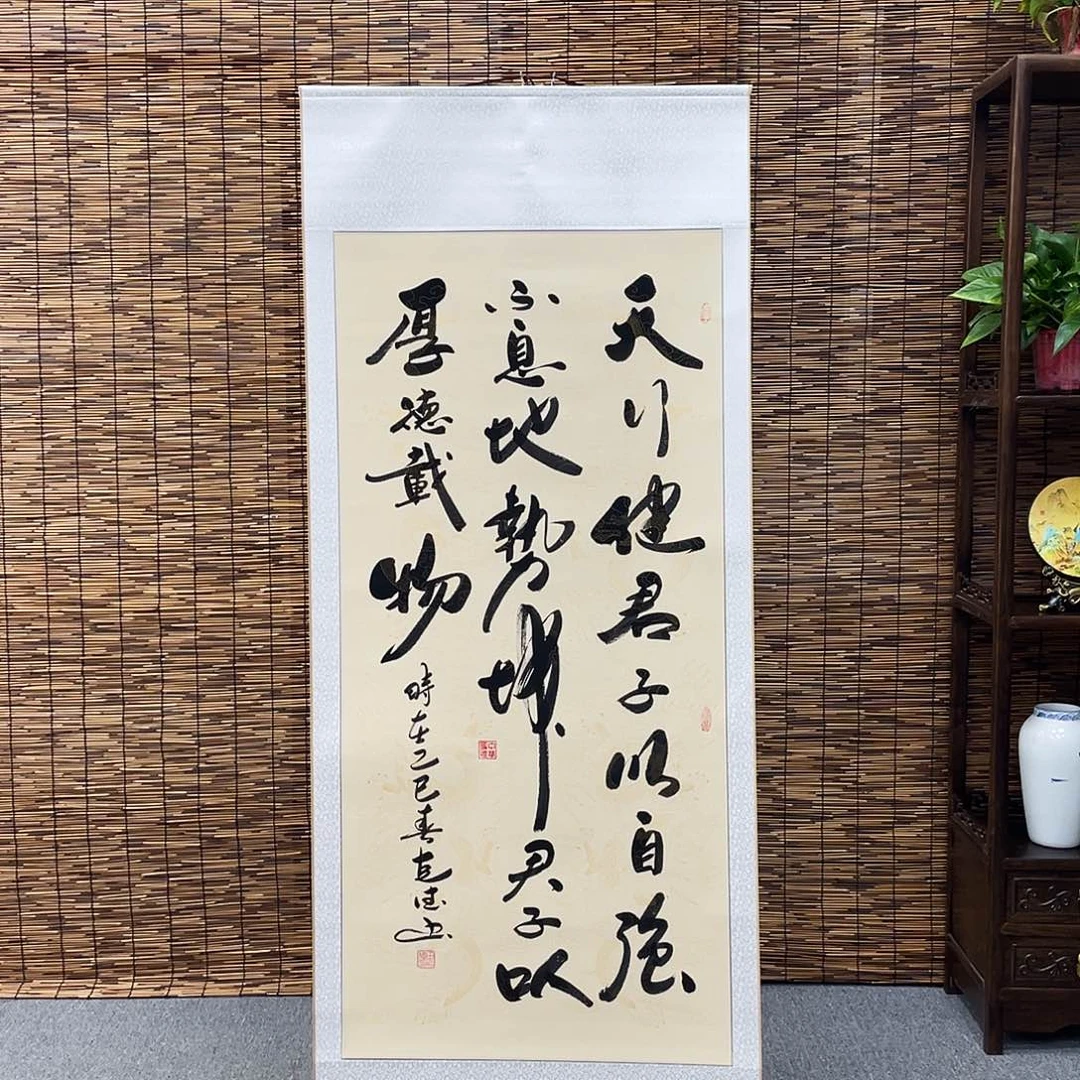 天行健君子以自強
不息地勢坤君子以
厚德載物
時在乙巳春